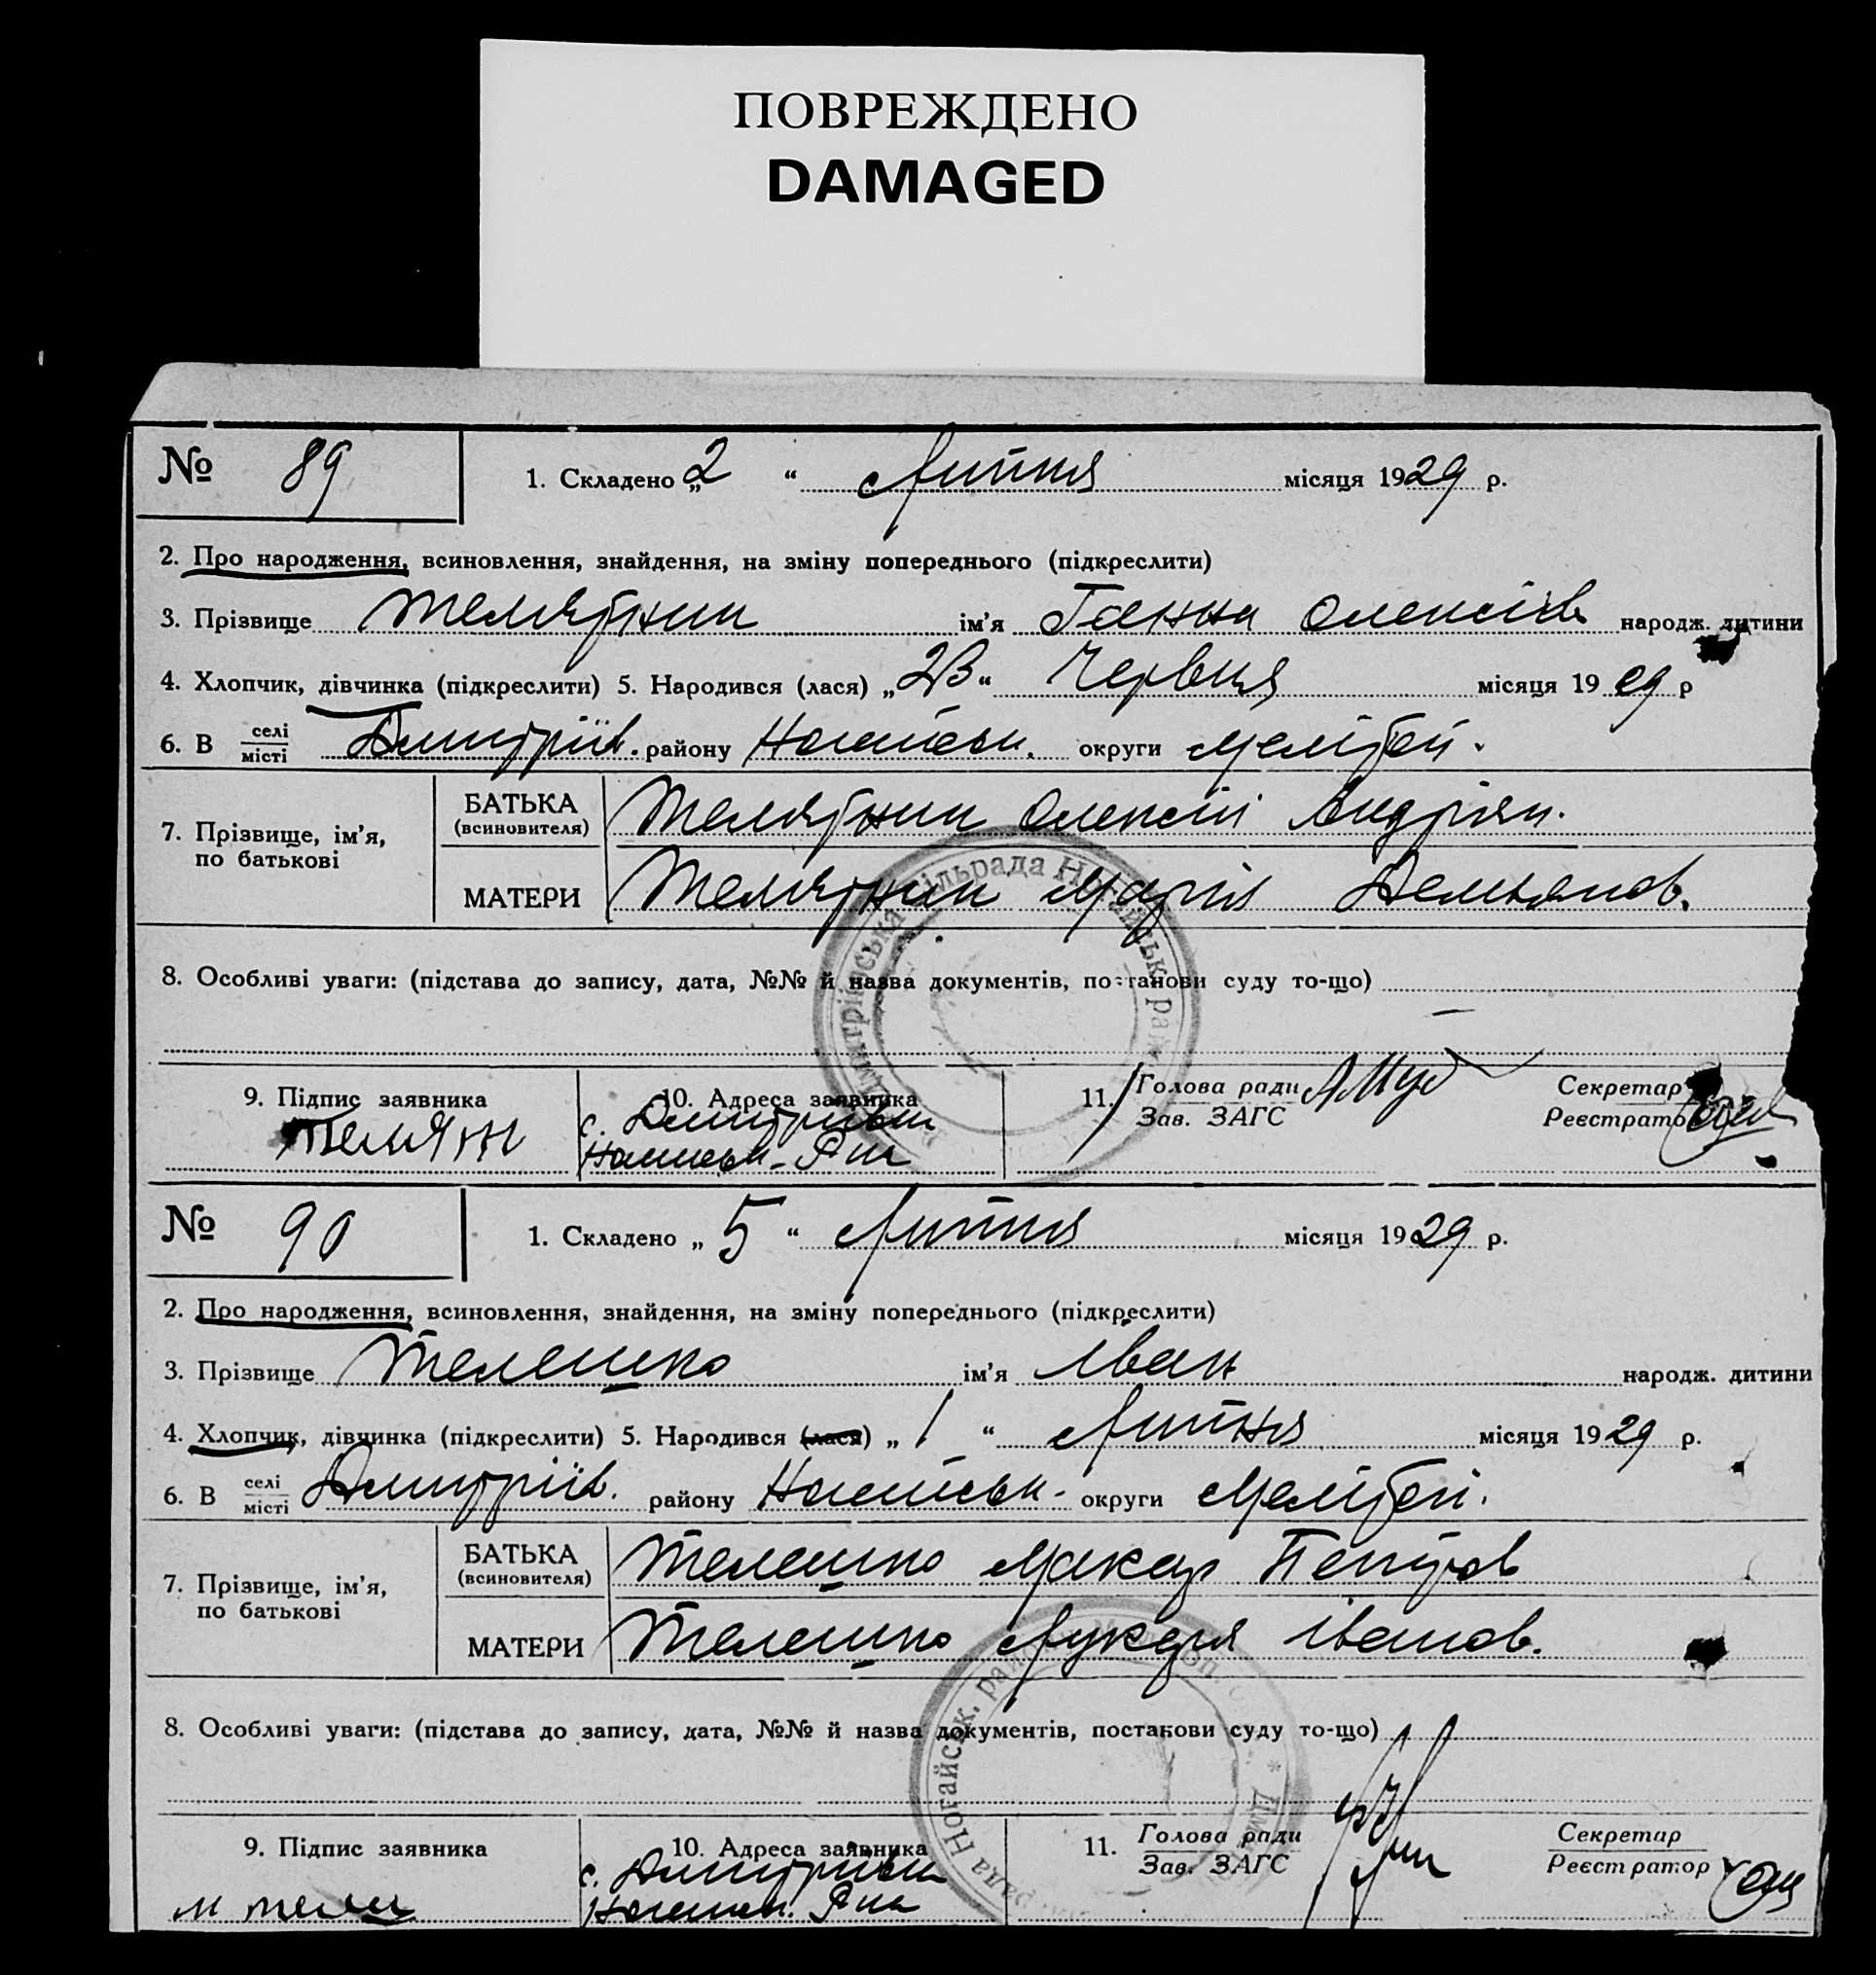 ПОВРЕЖДЕНО
DAMAGED
№ 89
1. Складено „2“ Липня місяця 1929 р.
2. Про народження, всиновлення, знайдення, на зміну попереднього (підкреслити)
3. Прізвище Телятник ім’я Ганна Олексіїв народж. дитини
4. Хлопчик, дівчинка (підкреслити) 5. Народився (лася) „23“ Червня місяця 1929 р
6. В селі місті Дмитріїв. району Ногайськ. округи Мелітоп.
7. Прізвище, ім’я, по батькові
БАТЬКА (всиновителя) Телятник Олексій Андріян.
МАТЕРИ Телятник Марія Демьянов.
8. Особливі уваги: (підстава до запису, дата, №№ й назва документів, постанови суду то-що)
9. Підпис заявника
10. Адреса заявника
11. Голова ради
Зав. ЗАГС
Секретар
Реєстратор
с. Дмитрівки
Ногайськ. Р-на
№ 90
1. Складено „5“ Липня місяця 1929 р.
2. Про народження, всиновлення, знайдення, на зміну попереднього (підкреслити)
3. Прізвище Телешко ім’я Іван народж. дитини
4. Хлопчик, дівчинка (підкреслити) 5. Народився (лася) „1“ Липня місяця 1929 р.
6. В селі місті Дмитріїв. району Ногайськ. округи Мелітоп.
7. Прізвище, ім’я, по батькові
БАТЬКА (всиновителя) Телешко Макар Петров
МАТЕРИ Телешко Лукеря Іванов.
8. Особливі уваги: (підстава до запису, дата, №№ й назва документів, постанови суду то-що)
9. Підпис заявника
10. Адреса заявника
11. Голова ради
Зав. ЗАГС
Секретар
Реєстратор
с. Дмитрівки
М Теле
Ногайськ. Р-на